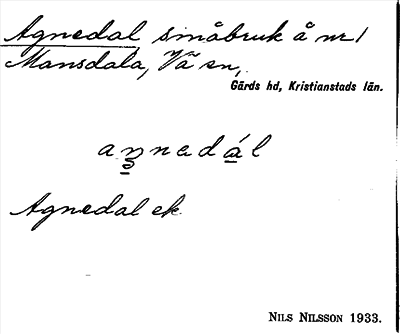 Agnedal småbruk å nr 1
Mansdala, Vä sn,
Gärds hd, Kristianstads län.
aŋnedál
Agnedal ek
NILS NILSSON 1933.